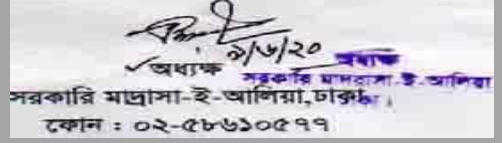 ৯/৬/২০
অধ্যক্ষ
অধ্যক্ষ
সরকারি মাদরাসা-ই-আলিয়া
সরকারি মাদ্রাসা-ই-আলিয়া, ঢাকা।
ফোন : ০২-৫৮৬১০৫৭৭